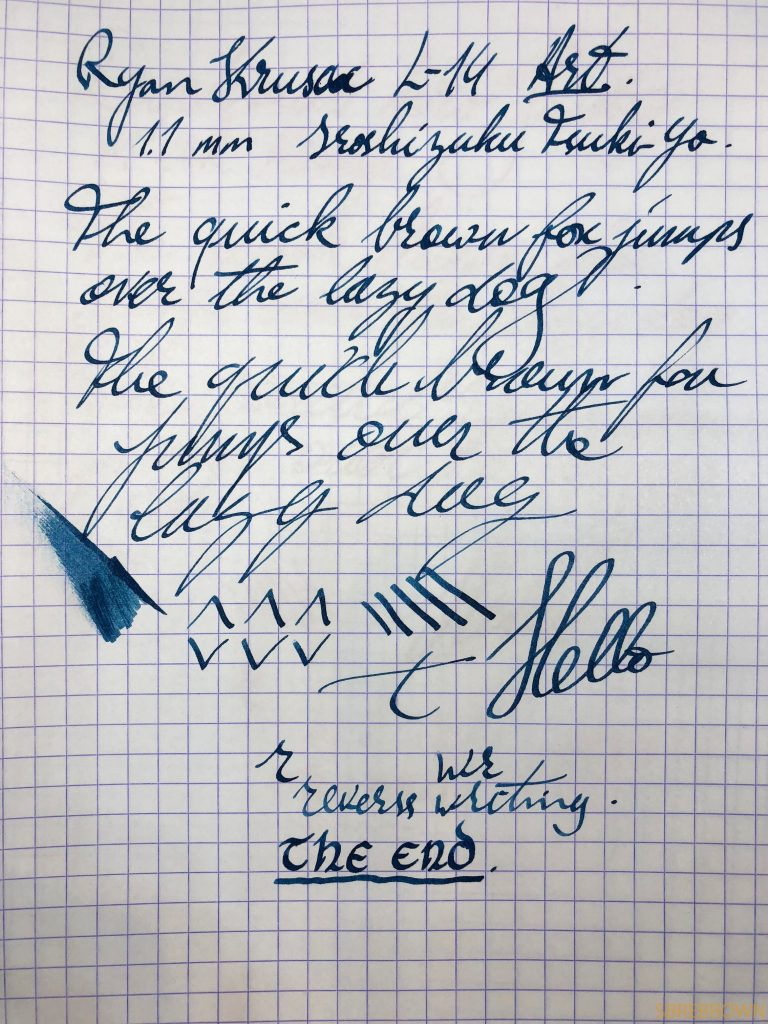 Ryan Krusac L-14 Art.
1.1 mm Iroshizuku Tsuki-Yo.
The quick brown fox jumps
over the lazy dog.
The quick brown fox
jumps over the
lazy dog
t Hello
r wr
reverse writing.
The End.
SBREBROWN